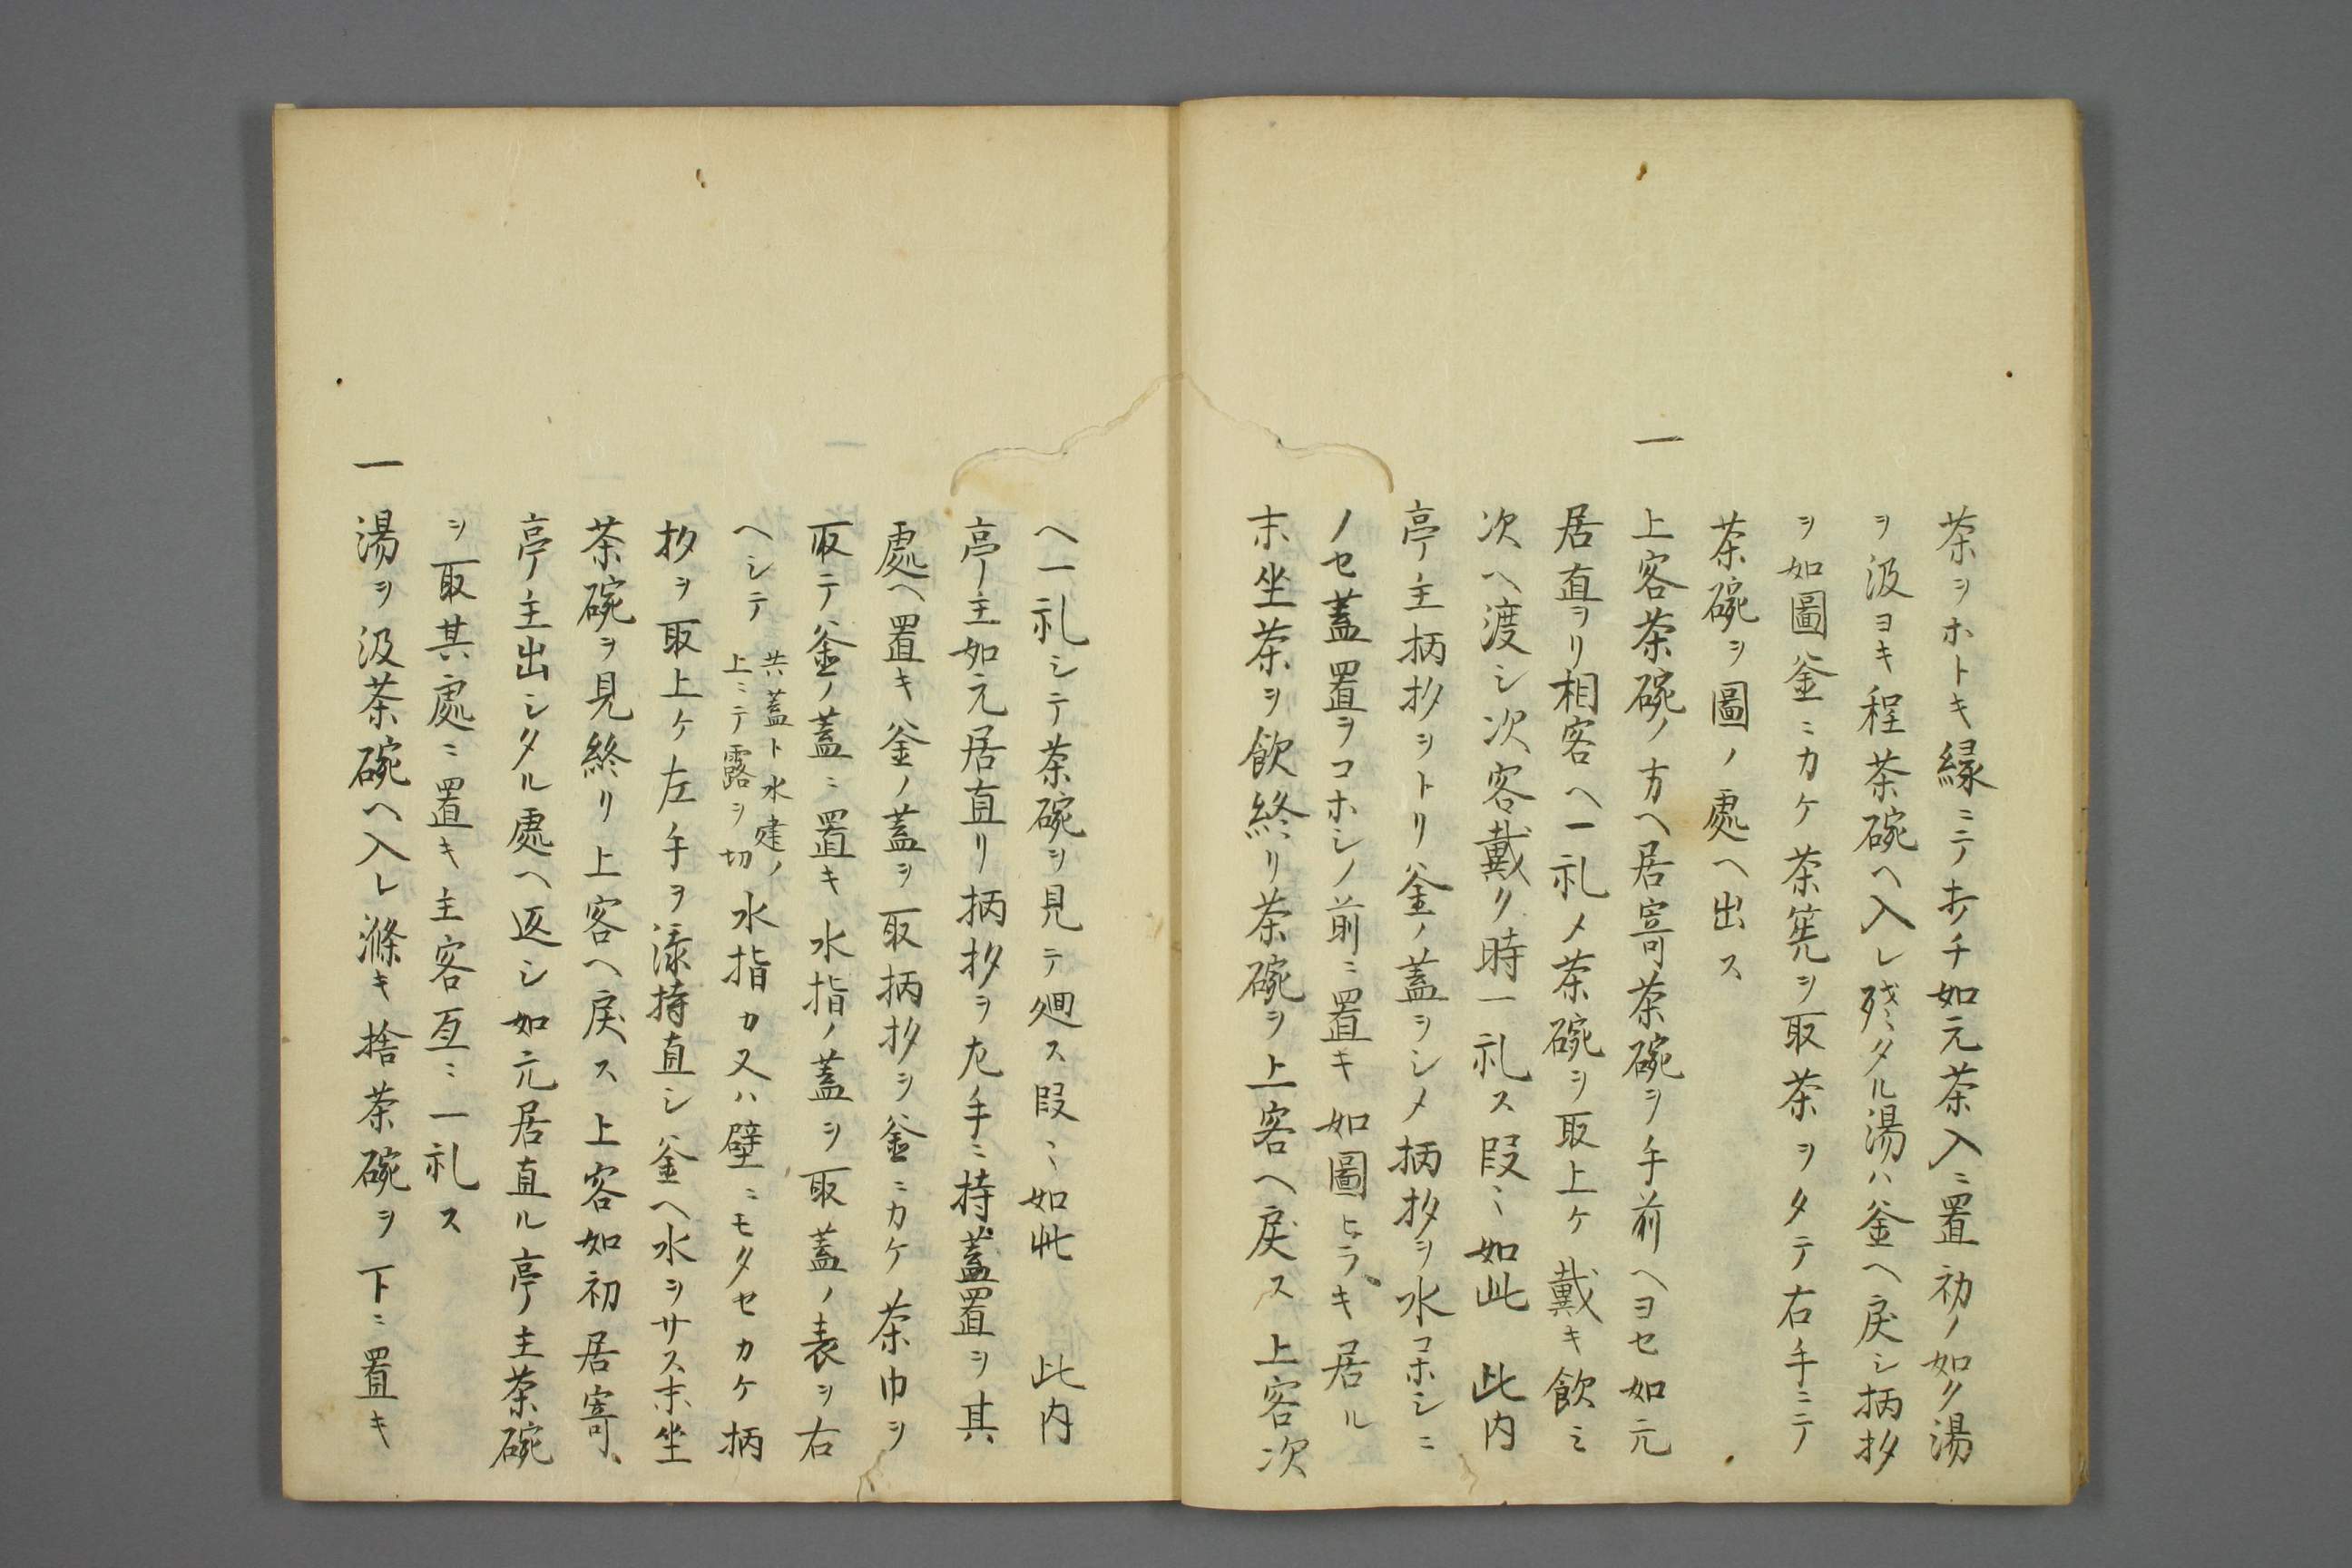 茶ヲホトキ縁ニテオノチ如元茶入ニ置初ノ如ク湯
ヲ汲ヨキ程茶碗ヘ入レ残タル湯ハ釜ヘ戻シ柄抄
ヲ如圖釜ニカケ茶筅ヲ取茶ヲタテ右手ニテ
茶碗ヲ圖ノ處ヘ出ス
一上客茶碗ノ方ヘ居寄茶碗ヲ手前ヘヨセ如元
居直ヲリ相客ヘ一礼メ茶碗ヲ取上ケ戴キ飲ミ
次ヘ渡シ次客戴ク時一礼ス段〻如此　此内
亭主柄抄ヲトリ釜ノ蓋ヲシメ柄抄ヲ水コホシニ
ノセ蓋置ヲコホシノ前ニ置キ如圖ヒラキ居ル
末坐茶ヲ飲終リ茶碗ヲ上客ヘ戻ス上客次
ヘ一礼シテ茶碗ヲ見テ廻ス段〻如此　此内
亭主如元居直リ柄抄ヲ左ノ手ニ持蓋置ヲ其
處ヘ置キ釜ノ蓋ヲ取柄抄ヲ釜ニカケ茶巾ヲ
取テ釜ノ蓋ニ置キ水指ノ蓋ヲ取蓋ノ表ヲ右
ヘシテ
共蓋ト水建ノ
上ニテ露ヲ切
水指カ又ハ壁ニモタセカケ柄
抄ヲ取上ケ左手ヲ添持直シ釜ヘ水ヲサス末坐
茶碗ヲ見終リ上客ヘ戻ス上客如初居寄、
亭主出シタル處ヘ返シ如元居直ル亭主茶碗
ヲ取其處ニ置キ主客互ニ一礼ス
一湯ヲ汲茶碗ヘ入レ滌キ捨茶碗ヲ下ニ置キ